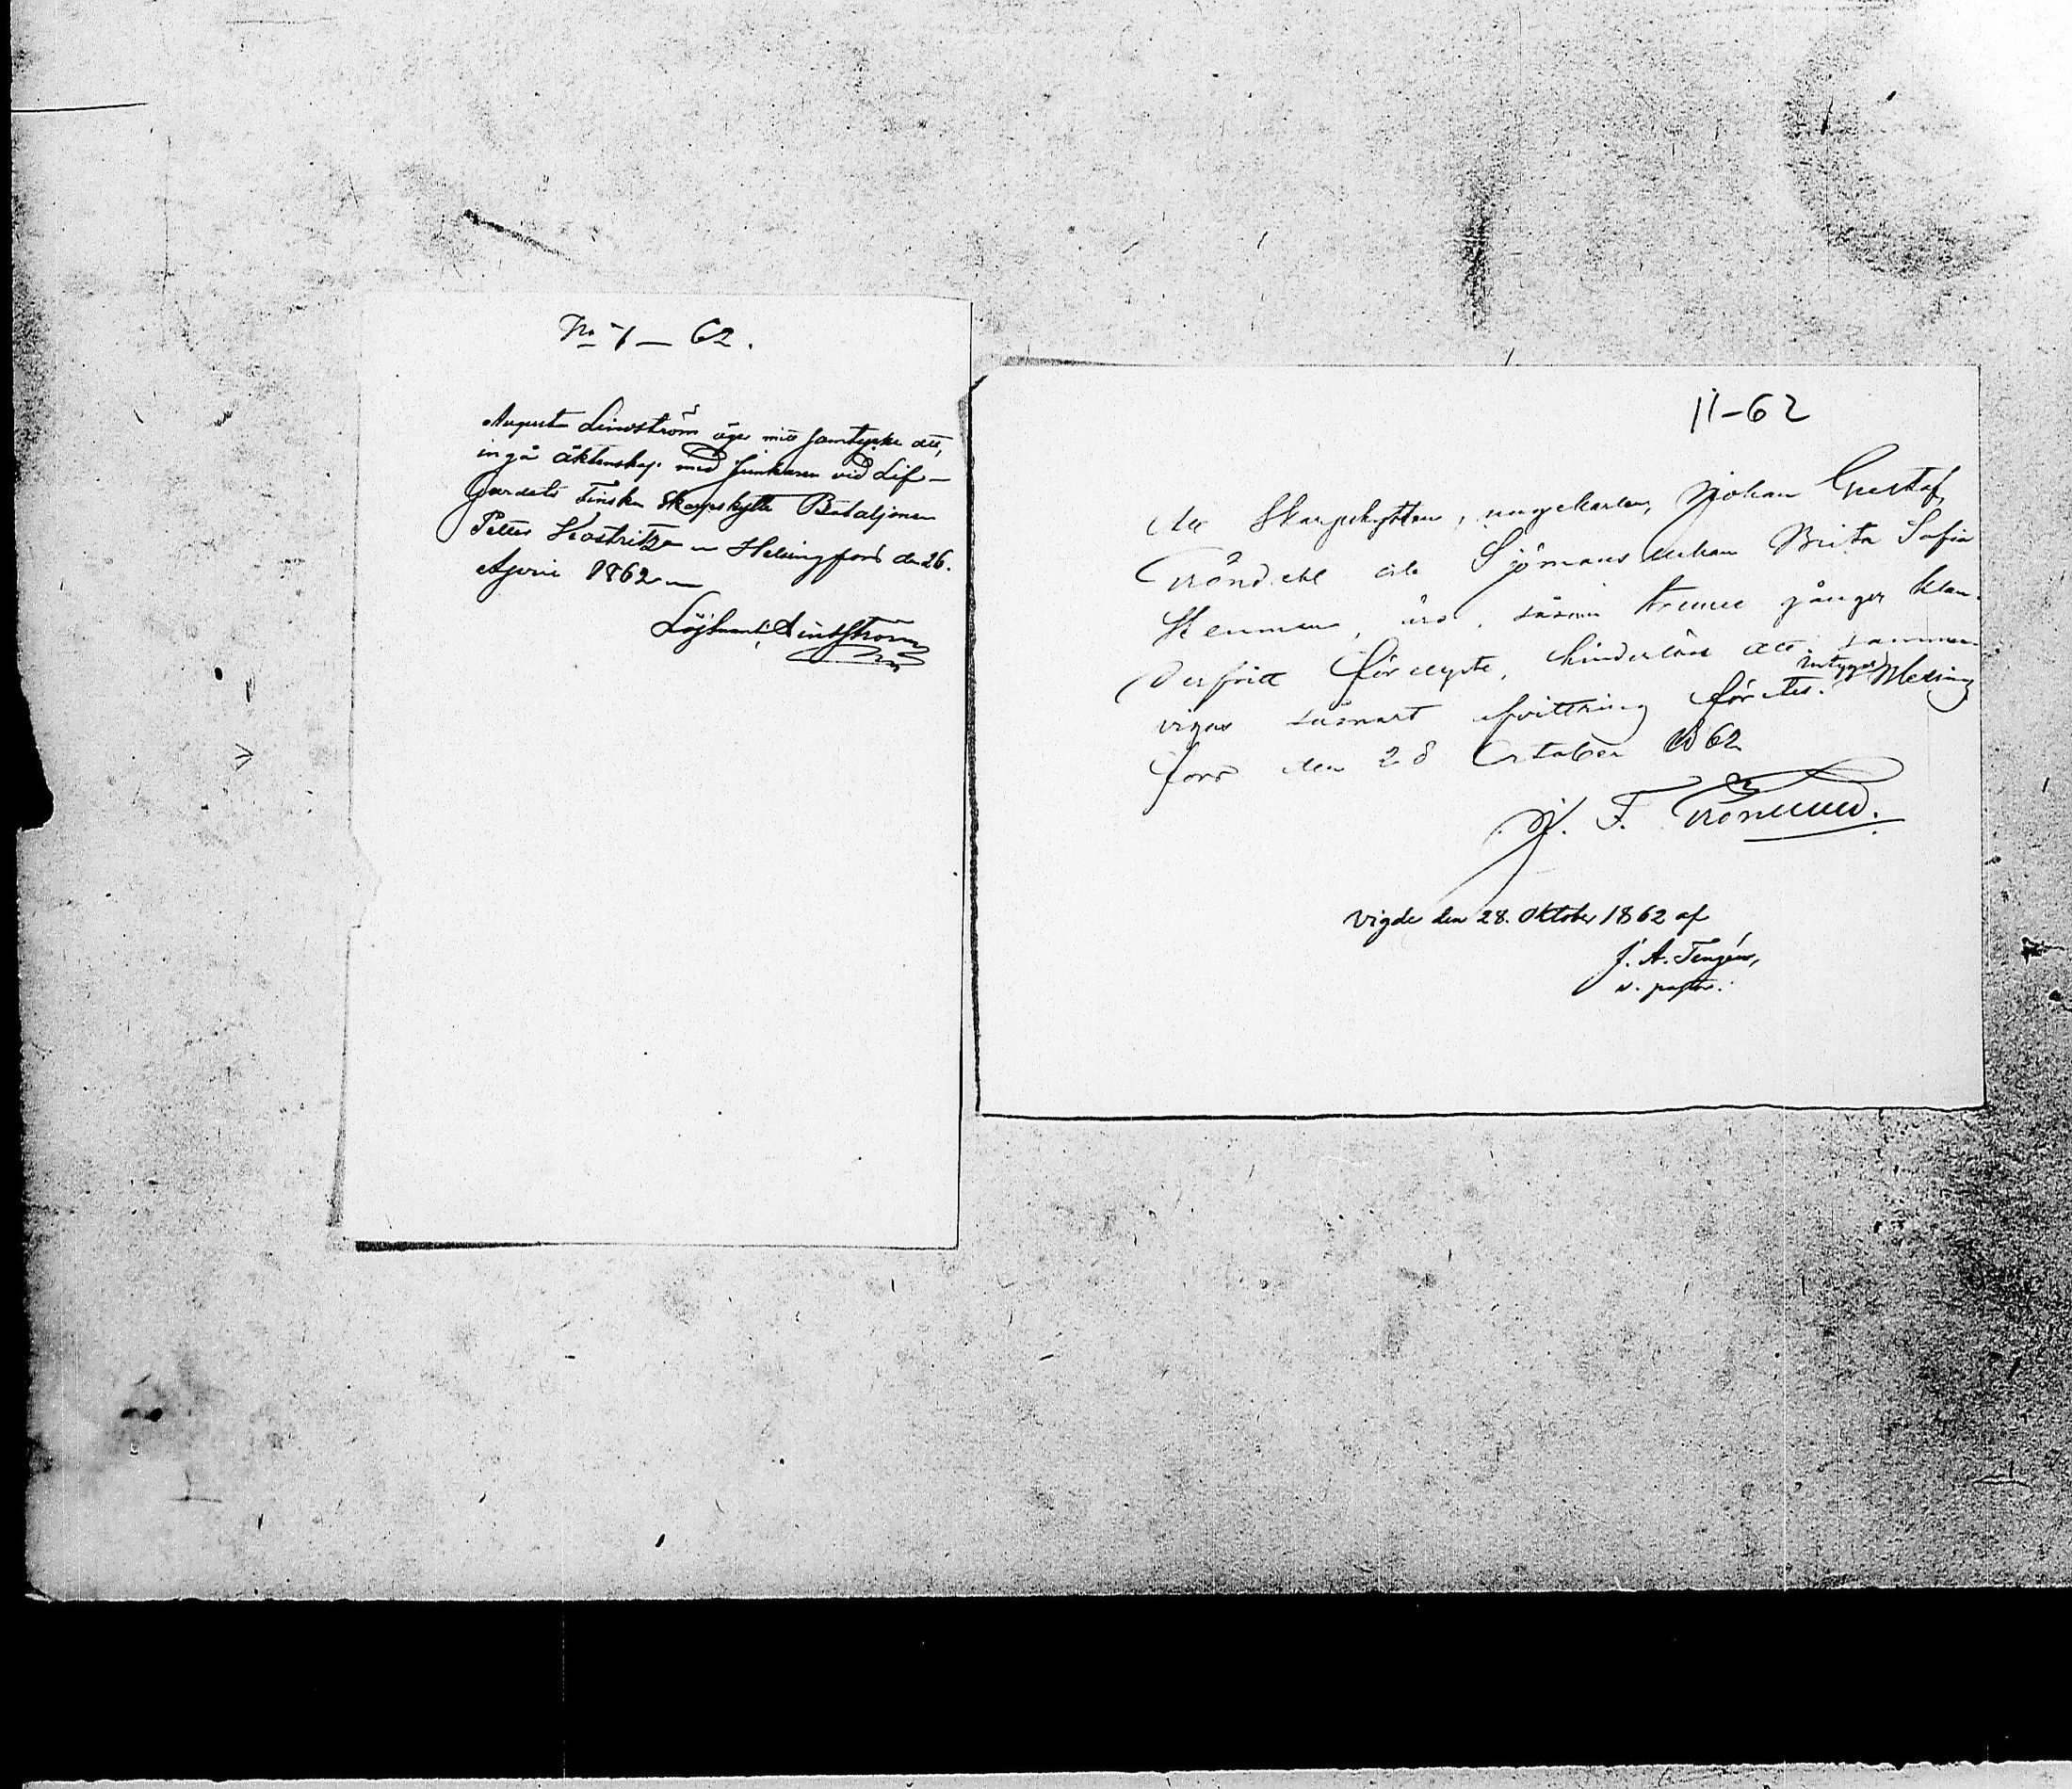 No 7 — 62.
August Lindström äger mitt samtycke att,
ingå äktenskap med Junkaren vid Lif-
gardets Finska Skarpskytte Bataljonen
Petter Kostritza — Helsingfors den 26.
April 1862 —
Löjtnant Lindström
11-62
Att Skarpskytten, ungekarlen, Johan Gustaf
Gröndahl och Sjömans enkan Brita Sofia
Stenman, äro, såsom trenne gånger klan-
derfritt förlyste, hinderlöse att samman-
intygar
vigas såsnart afvittring företes. Helsing
fors den 28 October 1862
J. F.
Vigde den 28. Oktober 1862 af
J. A. Tengén,
v. pastor.